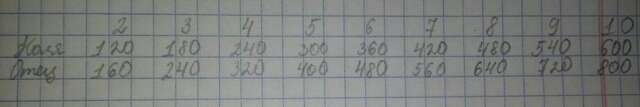 2 3 4 5 6 7 8 9 10
Коля 120 180 240 300 360 420 480 540 600
Отец 160 240 320 400 480 560 640 720 800